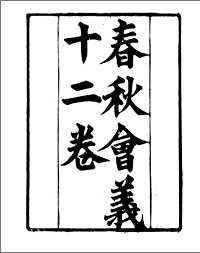 春秋會義
十二卷